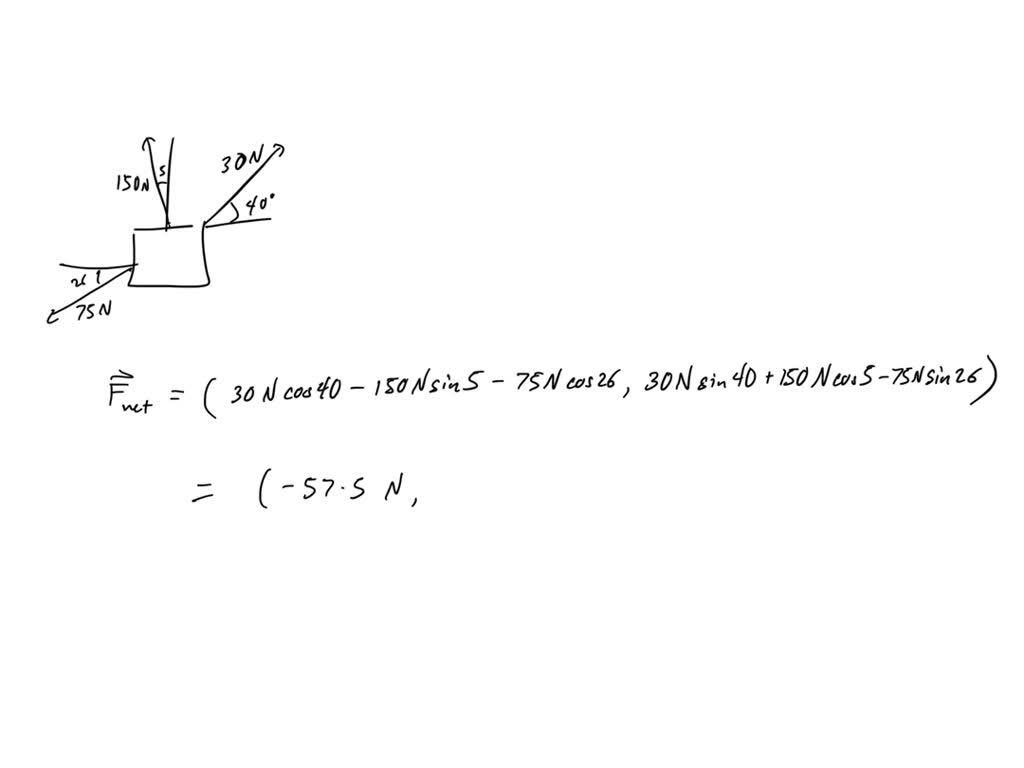 150N 5 30N
40°
26
75N
F⃗net = ( 30 N cos 40 - 150 N sin 5 - 75 N cos 26 , 30 N sin 40 + 150 N cos 5 - 75 N sin 26 )
= ( -57.5 N ,